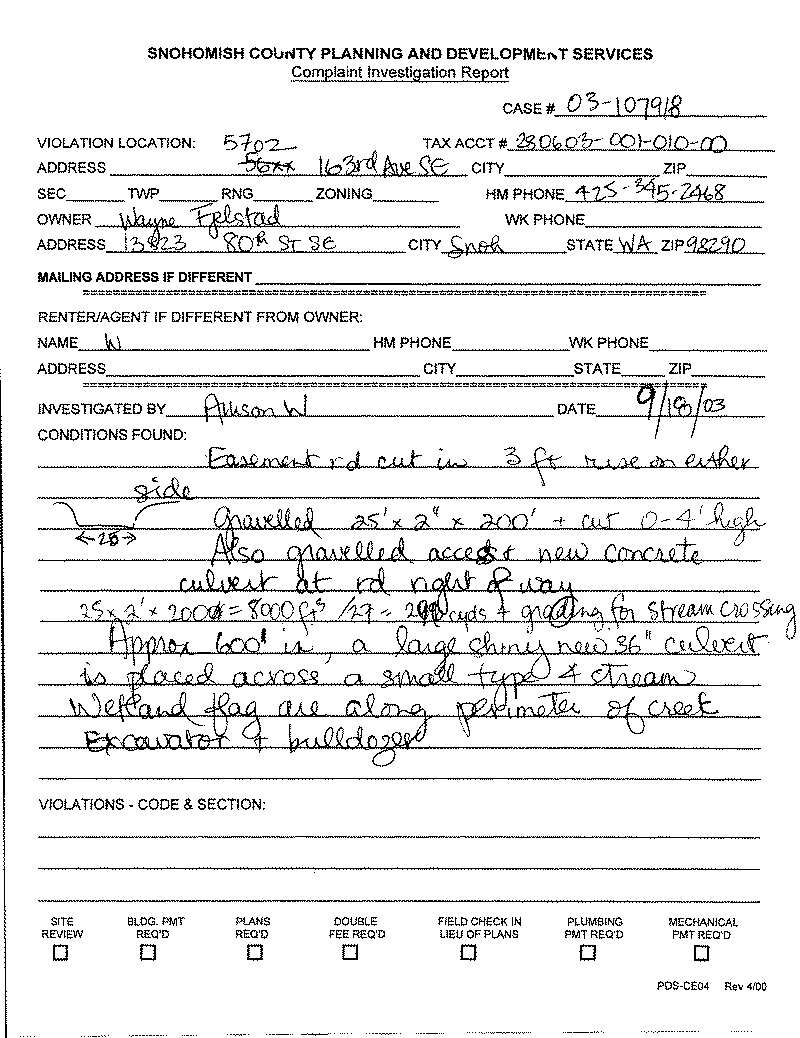 SNOHOMISH COUNTY PLANNING AND DEVELOPMENT SERVICES
Complaint Investigation Report
CASE # 03-107918
VIOLATION LOCATION: 5702 TAX ACCT # 280603-001-010-00
ADDRESS 56xx 163rd Ave SE CITY ZIP
SEC TWP RNG ZONING HM PHONE 425-345-2468
OWNER Wayne Fjelstad WK PHONE
ADDRESS 13823 80th St SE CITY Snoh STATE WA ZIP 98290
MAILING ADDRESS IF DIFFERENT
RENTER/AGENT IF DIFFERENT FROM OWNER:
NAME W HM PHONE WK PHONE
ADDRESS CITY STATE ZIP
INVESTIGATED BY Allison W DATE 9/18/03
CONDITIONS FOUND:
Easement rd cut in 3 ft rise on either
side
Gravelled 25' x 2" x 200' + cut 0-4' high
←25→
Also gravelled access + new concrete
culvert at rd right of way
25 x 2' x 200 = 8000 ft³ /27 = cyds + grading for stream crossing
Approx 600' in, a large shiny new 36" culvert
is placed across a small type 4 stream
Wetland flag are along perimeter of creek
Excavator + bulldozer
VIOLATIONS - CODE & SECTION:
SITE REVIEW
BLDG. PMT REQ'D
PLANS REQ'D
DOUBLE FEE REQ'D
FIELD CHECK IN LIEU OF PLANS
PLUMBING PMT REQ'D
MECHANICAL PMT REQ'D
PDS-CE04 Rev 4/00